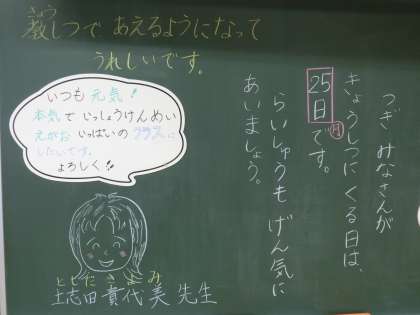 きょう
教しつで あえるようになって
うれしいです。
いつも 元気！
本気で いっしょうけんめい
えがお いっぱいの クラスに
したいです。
よろしく!!
としだ きよみ
土志田 貴代美 先生
つぎ みなさんが
きょうしつに くる日は、
25日(月)です。
らいしゅうも げん気に
あいましょう。